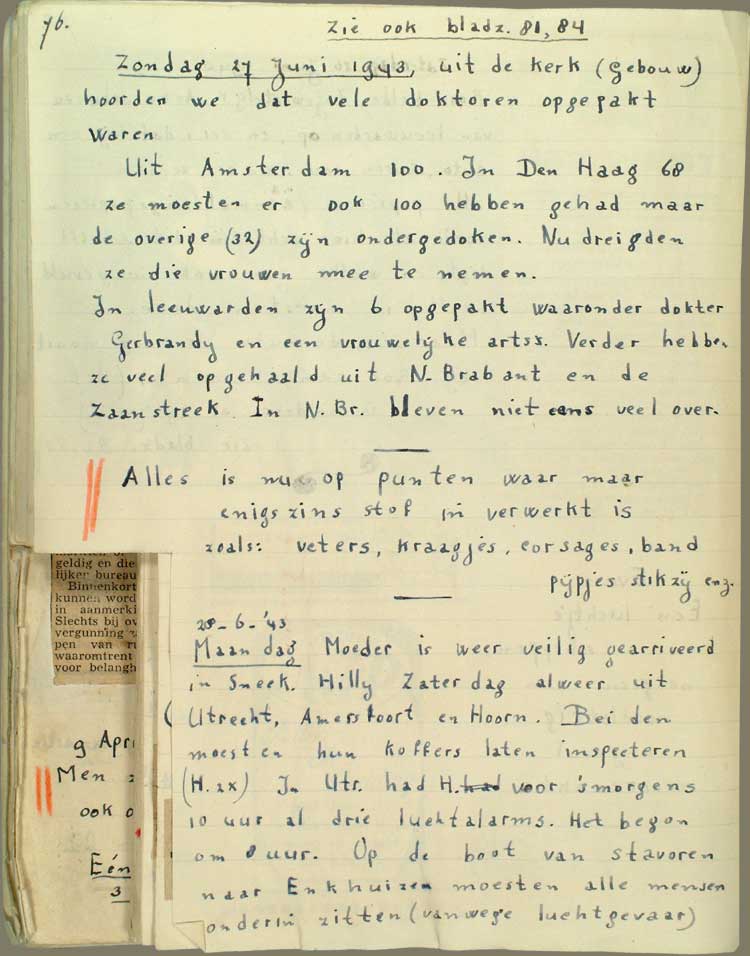 76.
Zie ook bladz. 81, 84
Zondag 27 Juni 1943, uit de kerk (Gebouw)
hoorden we dat vele doktoren opgepakt
waren
Uit Amsterdam 100. In Den Haag 68
ze moesten er ook 100 hebben gehad maar
de overige (32) zijn ondergedoken. Nu dreigden
ze die vrouwen mee te nemen.
In leeuwarden zijn 6 opgepakt waaronder dokter
Gerbrandy en een vrouwelijke arts. Verder hebben
ze veel opgehaald uit N-Brabant en de
Zaanstreek. In N.Br. bleven niet eens veel over.
Alles is nu op punten waar maar
enigszins stof in verwerkt is
zoals: veters, kraagjes, corsages, band
pijpjes stikzij enz.
28-6-'43
Maandag Moeder is weer veilig gearriveerd
in Sneek. Hilly Zaterdag alweer uit
(Utrecht, Amersfoort en Hoorn. Beiden
moesten hun koffers laten inspecteren
(H. 2x) In Utr. had H. had voor 'smorgens
10 uur al drie luchtalarms. Het begon
om 8 uur. Op de boot van Stavoren
naar Enkhuizen moesten alle mensen
onderin zitten (vanwege luchtgevaar)
geldig en die
lijker bureau
Binnenkort
kunnen word
in aanmerki
Slechts bij ov
vergunning
pen van
waaromtrent
voor belangh
9 Apri
Men
ook
Eén
3